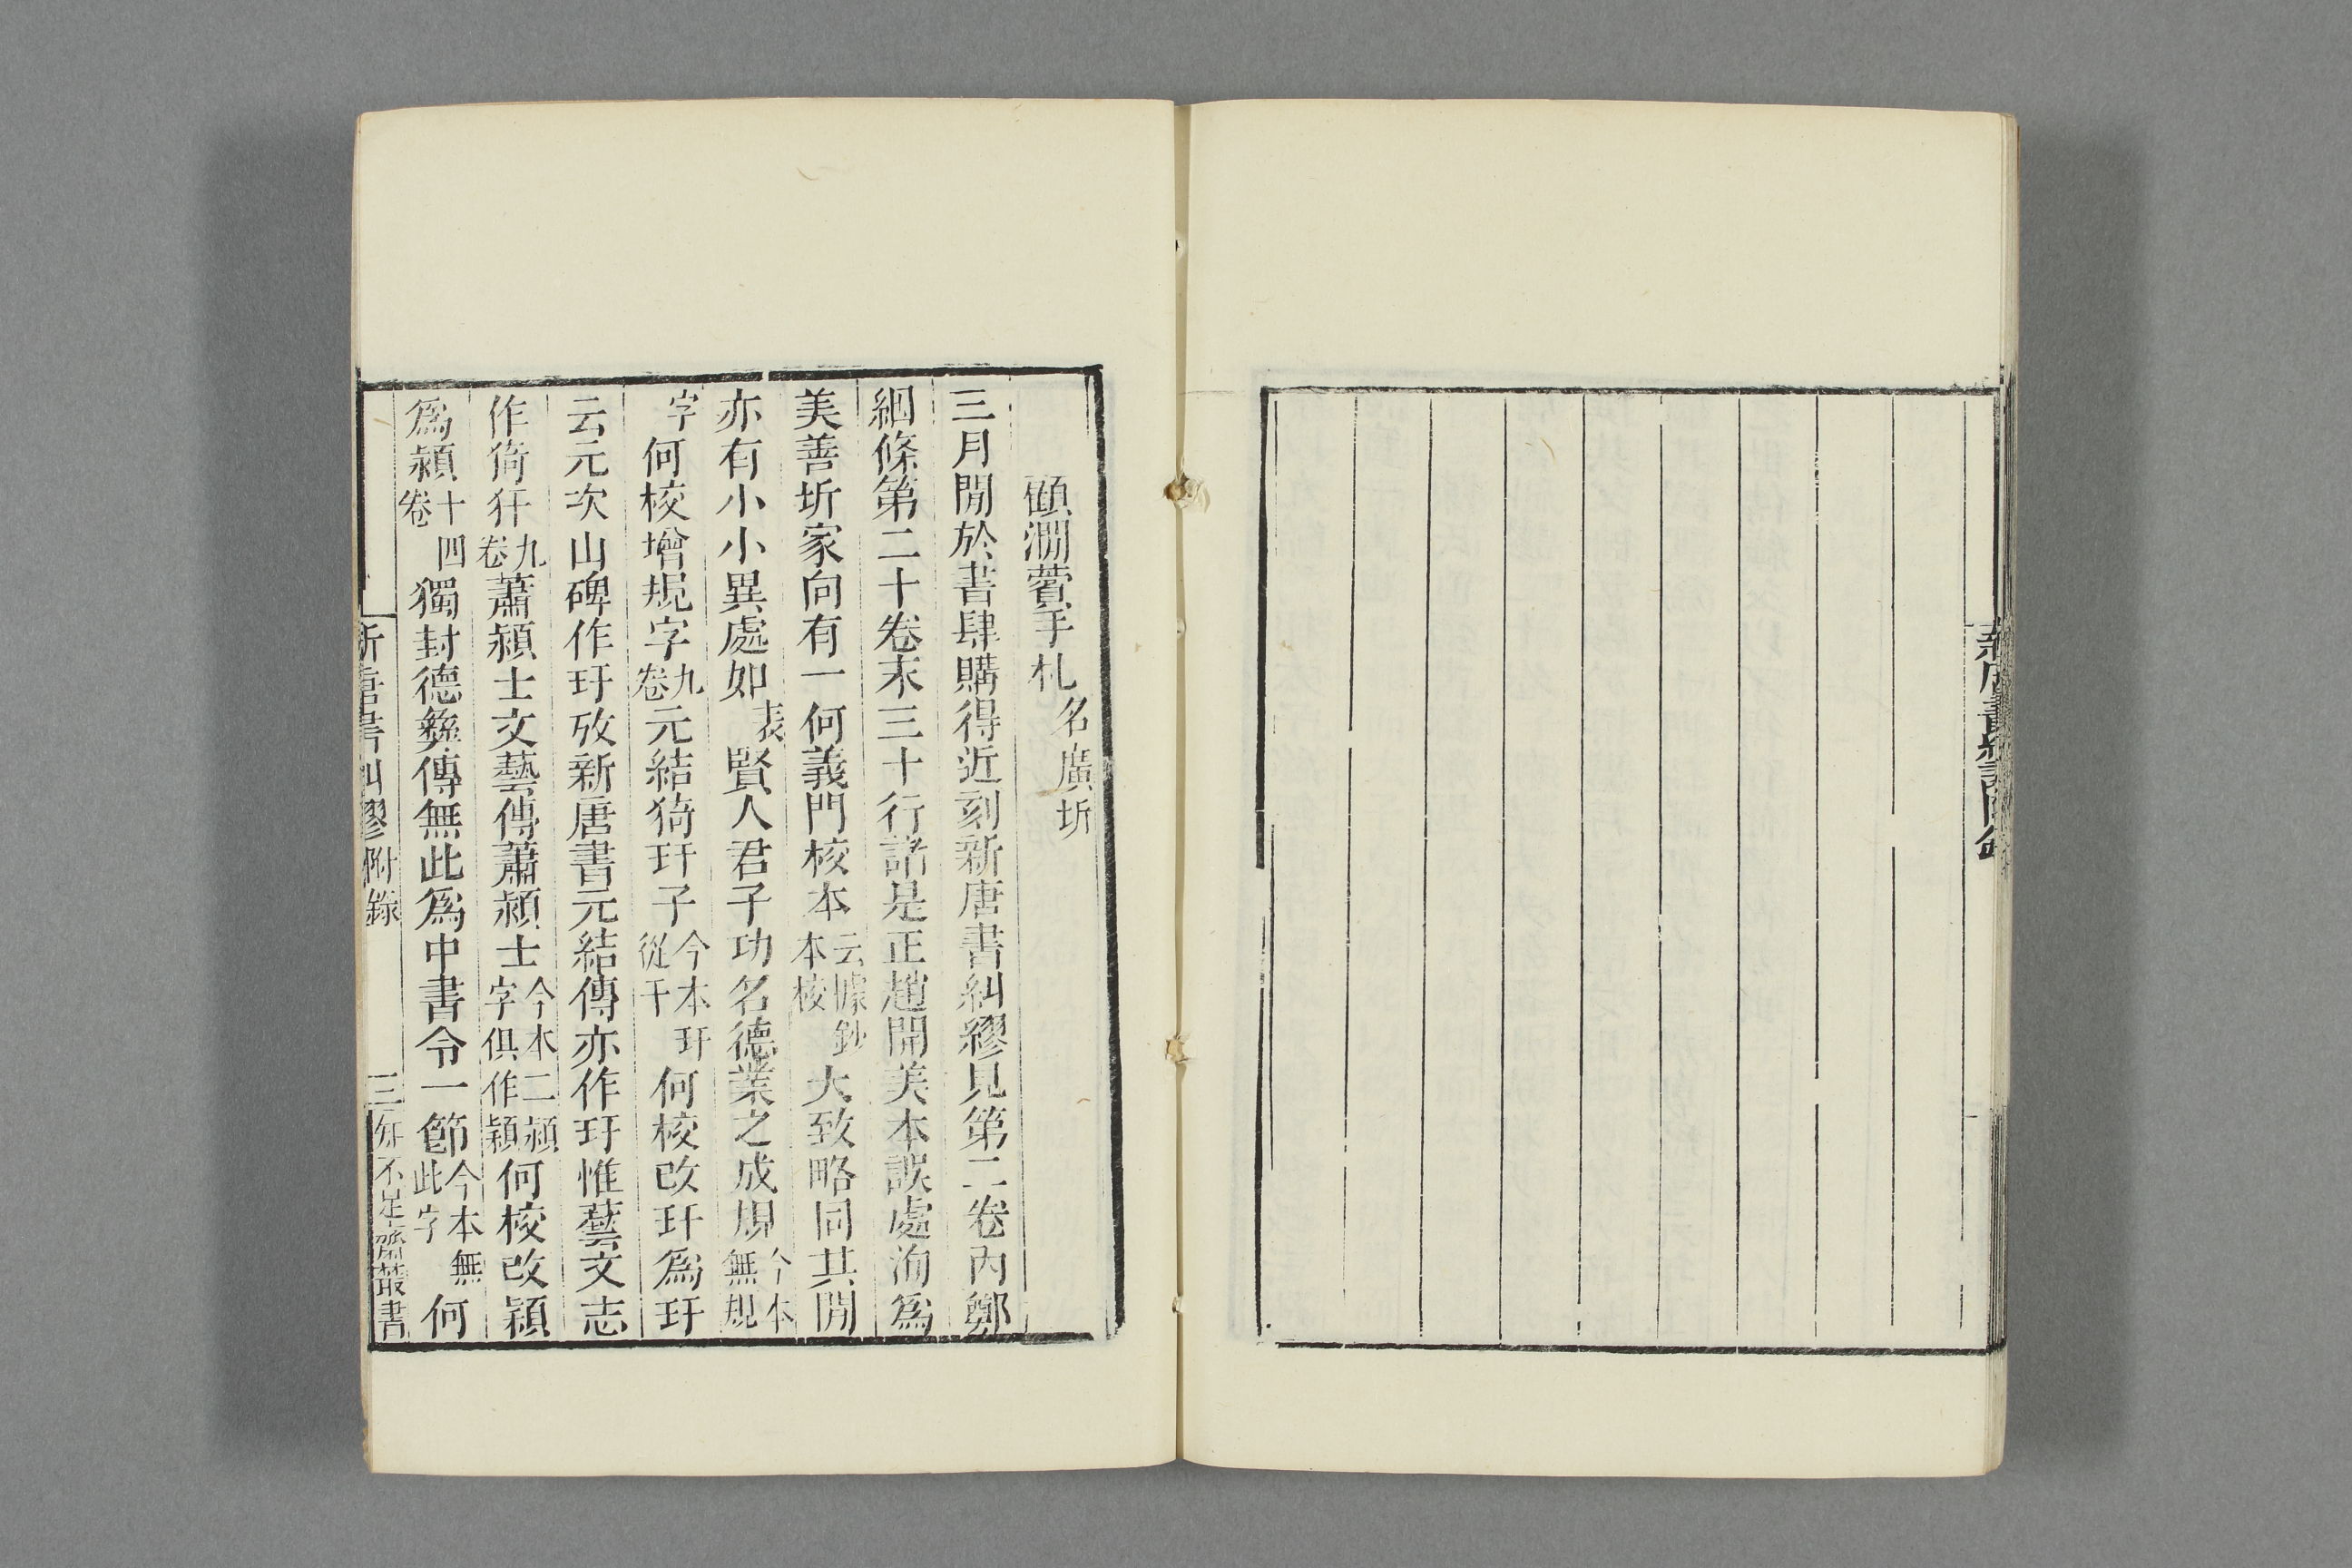 新唐書糾謬附錄
顧澗薲手札名廣圻
三月閒於書肆購得近刻新唐書糾繆見第二卷內鄭
絪條第二十卷末三十行諸是正趙開美本誤處洵爲
美善圻家向有一何義門校本云據鈔本校大致略同其閒
亦有小小異處如表賢人君子功名德業之成規今本無規
字何校增規字卷九元結猗玕子今本玕從干何校改玗爲玗
云元次山碑作玗攷新唐書元結傳亦作玗惟藝文志
作猗犴卷九蕭潁士文藝傳蕭潁士今本二潁字俱作穎何校改穎
爲潁卷十四獨封德彝傳無此爲中書令一節今本無此字何
新唐書糾謬附錄 三 知不足齋叢書